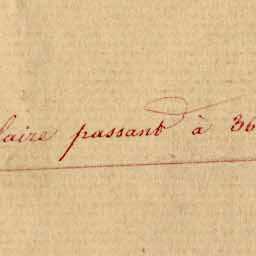 laire passant à 36